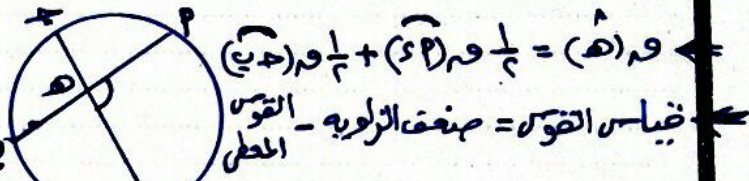 ق(هـ) = ½ ق(٢٤) + ½ ق(حب)
قياس القوس = ضعف الزاوية - القوس المعطى
حـ
م
هـ